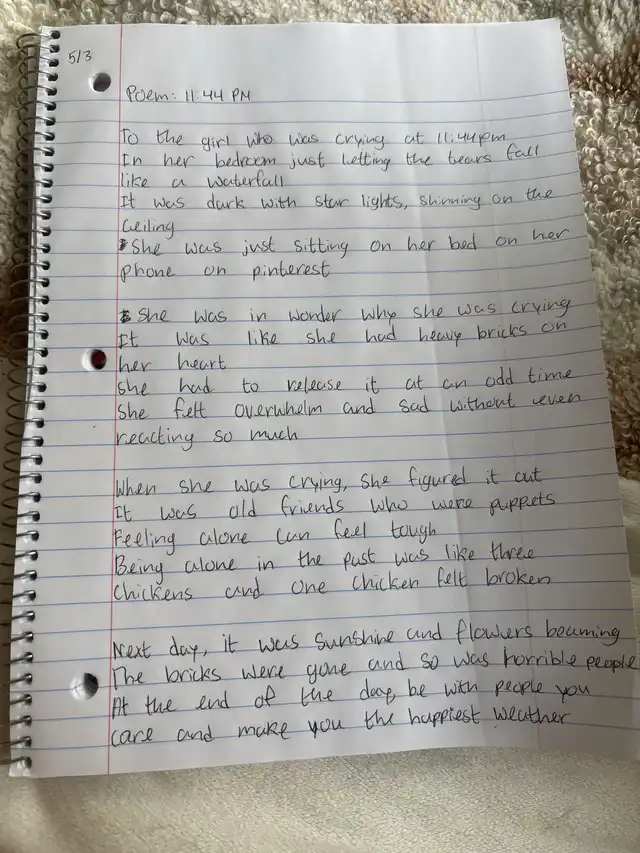 5/3
Poem: 11:44 PM
To the girl who was crying at 11:44pm
In her bedroom just letting the tears fall
like a waterfall
It was dark with star lights, shinning on the
ceiling
She was just sitting on her bed on her
phone on pinterest
She was in wonder why she was crying
It was like she had heavy bricks on
her heart
She had to release it at an odd time
She felt overwhelm and sad without even
reacting so much
When she was crying, she figured it out
It was old friends who were puppets
Feeling alone can feel tough
Being alone in the past was like three
chickens and one chicken felt broken
Next day, it was sunshine and flowers beaming
The bricks were gone and so was horrible people
At the end of the day, be with people you
care and make you the happiest weather